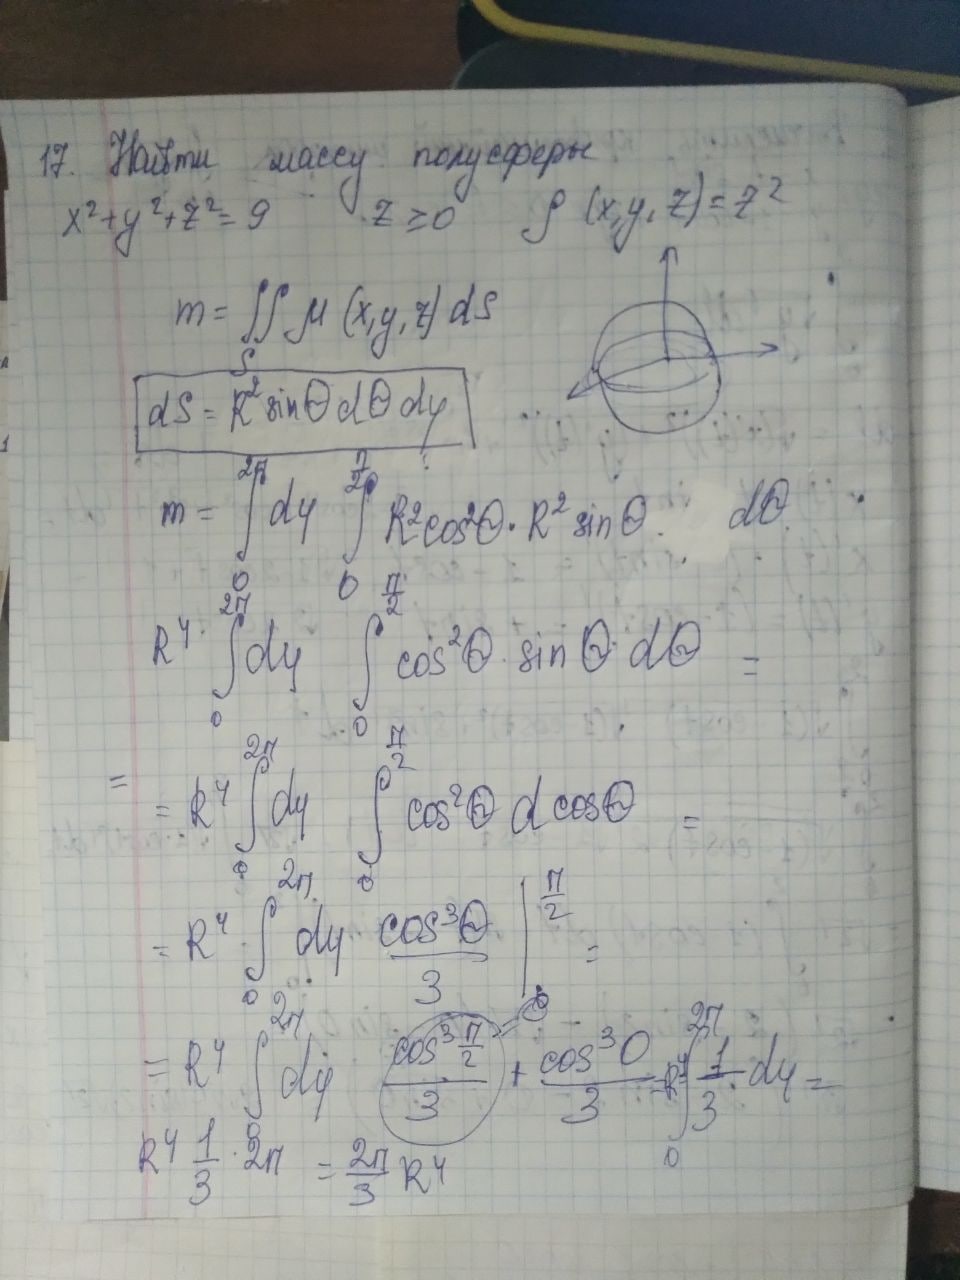 17. Найти массу полусферы
x²+y²+z²=9 z≥0 ρ(x,y,z)=z²
m=∬_S μ(x,y,z) dS
dS = R² sinΘ dΘ dy
m= ∫_0^{2π} dy ∫_0^{π/2} R² cos²Θ · R² sinΘ dΘ
R⁴ ∫_0^{2π} dy ∫_0^{π/2} cos²Θ · sinΘ dΘ =
= = R⁴ ∫_0^{2π} dy ∫_0^{π/2} cos²Θ d cosΘ =
= R⁴ ∫_0^{2π} dy cos³Θ/3 |_0^{π/2} =
= R⁴ ∫_0^{2π} dy (cos³ π/2)/3 =0 + (cos³0)/3 = R⁴ ∫_0^{2π} 1/3 dy =
R⁴ 1/3 · 2π = 2π/3 R⁴